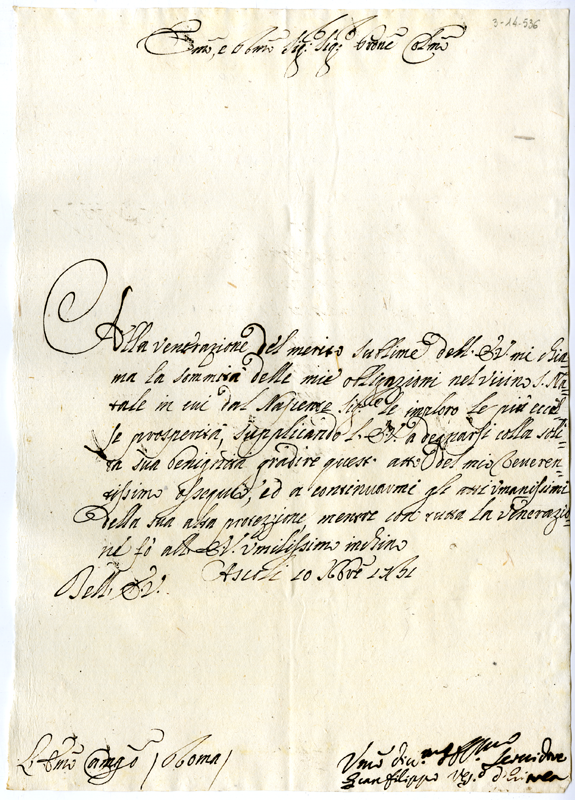 3-14-536
Emo, e Rmo Sig: Sig: Prone Colmo
Alla venerazione del merito sublime dell' E.V. mi chia=
ma la somma delle mie obligazioni nel vicino S. Na=
tale in cui dal Nascente Sig:re le imploro le più eccel=
se prosperità, supplicando l'E.V. a degnarsi colla soli=
ta sua benignità gradire quest' atto del mio Reveren=
tissimo ossequio, ed a continuarmi gli atti umanissimi
della sua alta protezione, mentre con tutta la venerazio=
ne fò all' E.V. umilissimo inchino
Ascoli 10 Xbre
Dell' E.V.
(Roma)
Umo Servidore
Gian Filippo